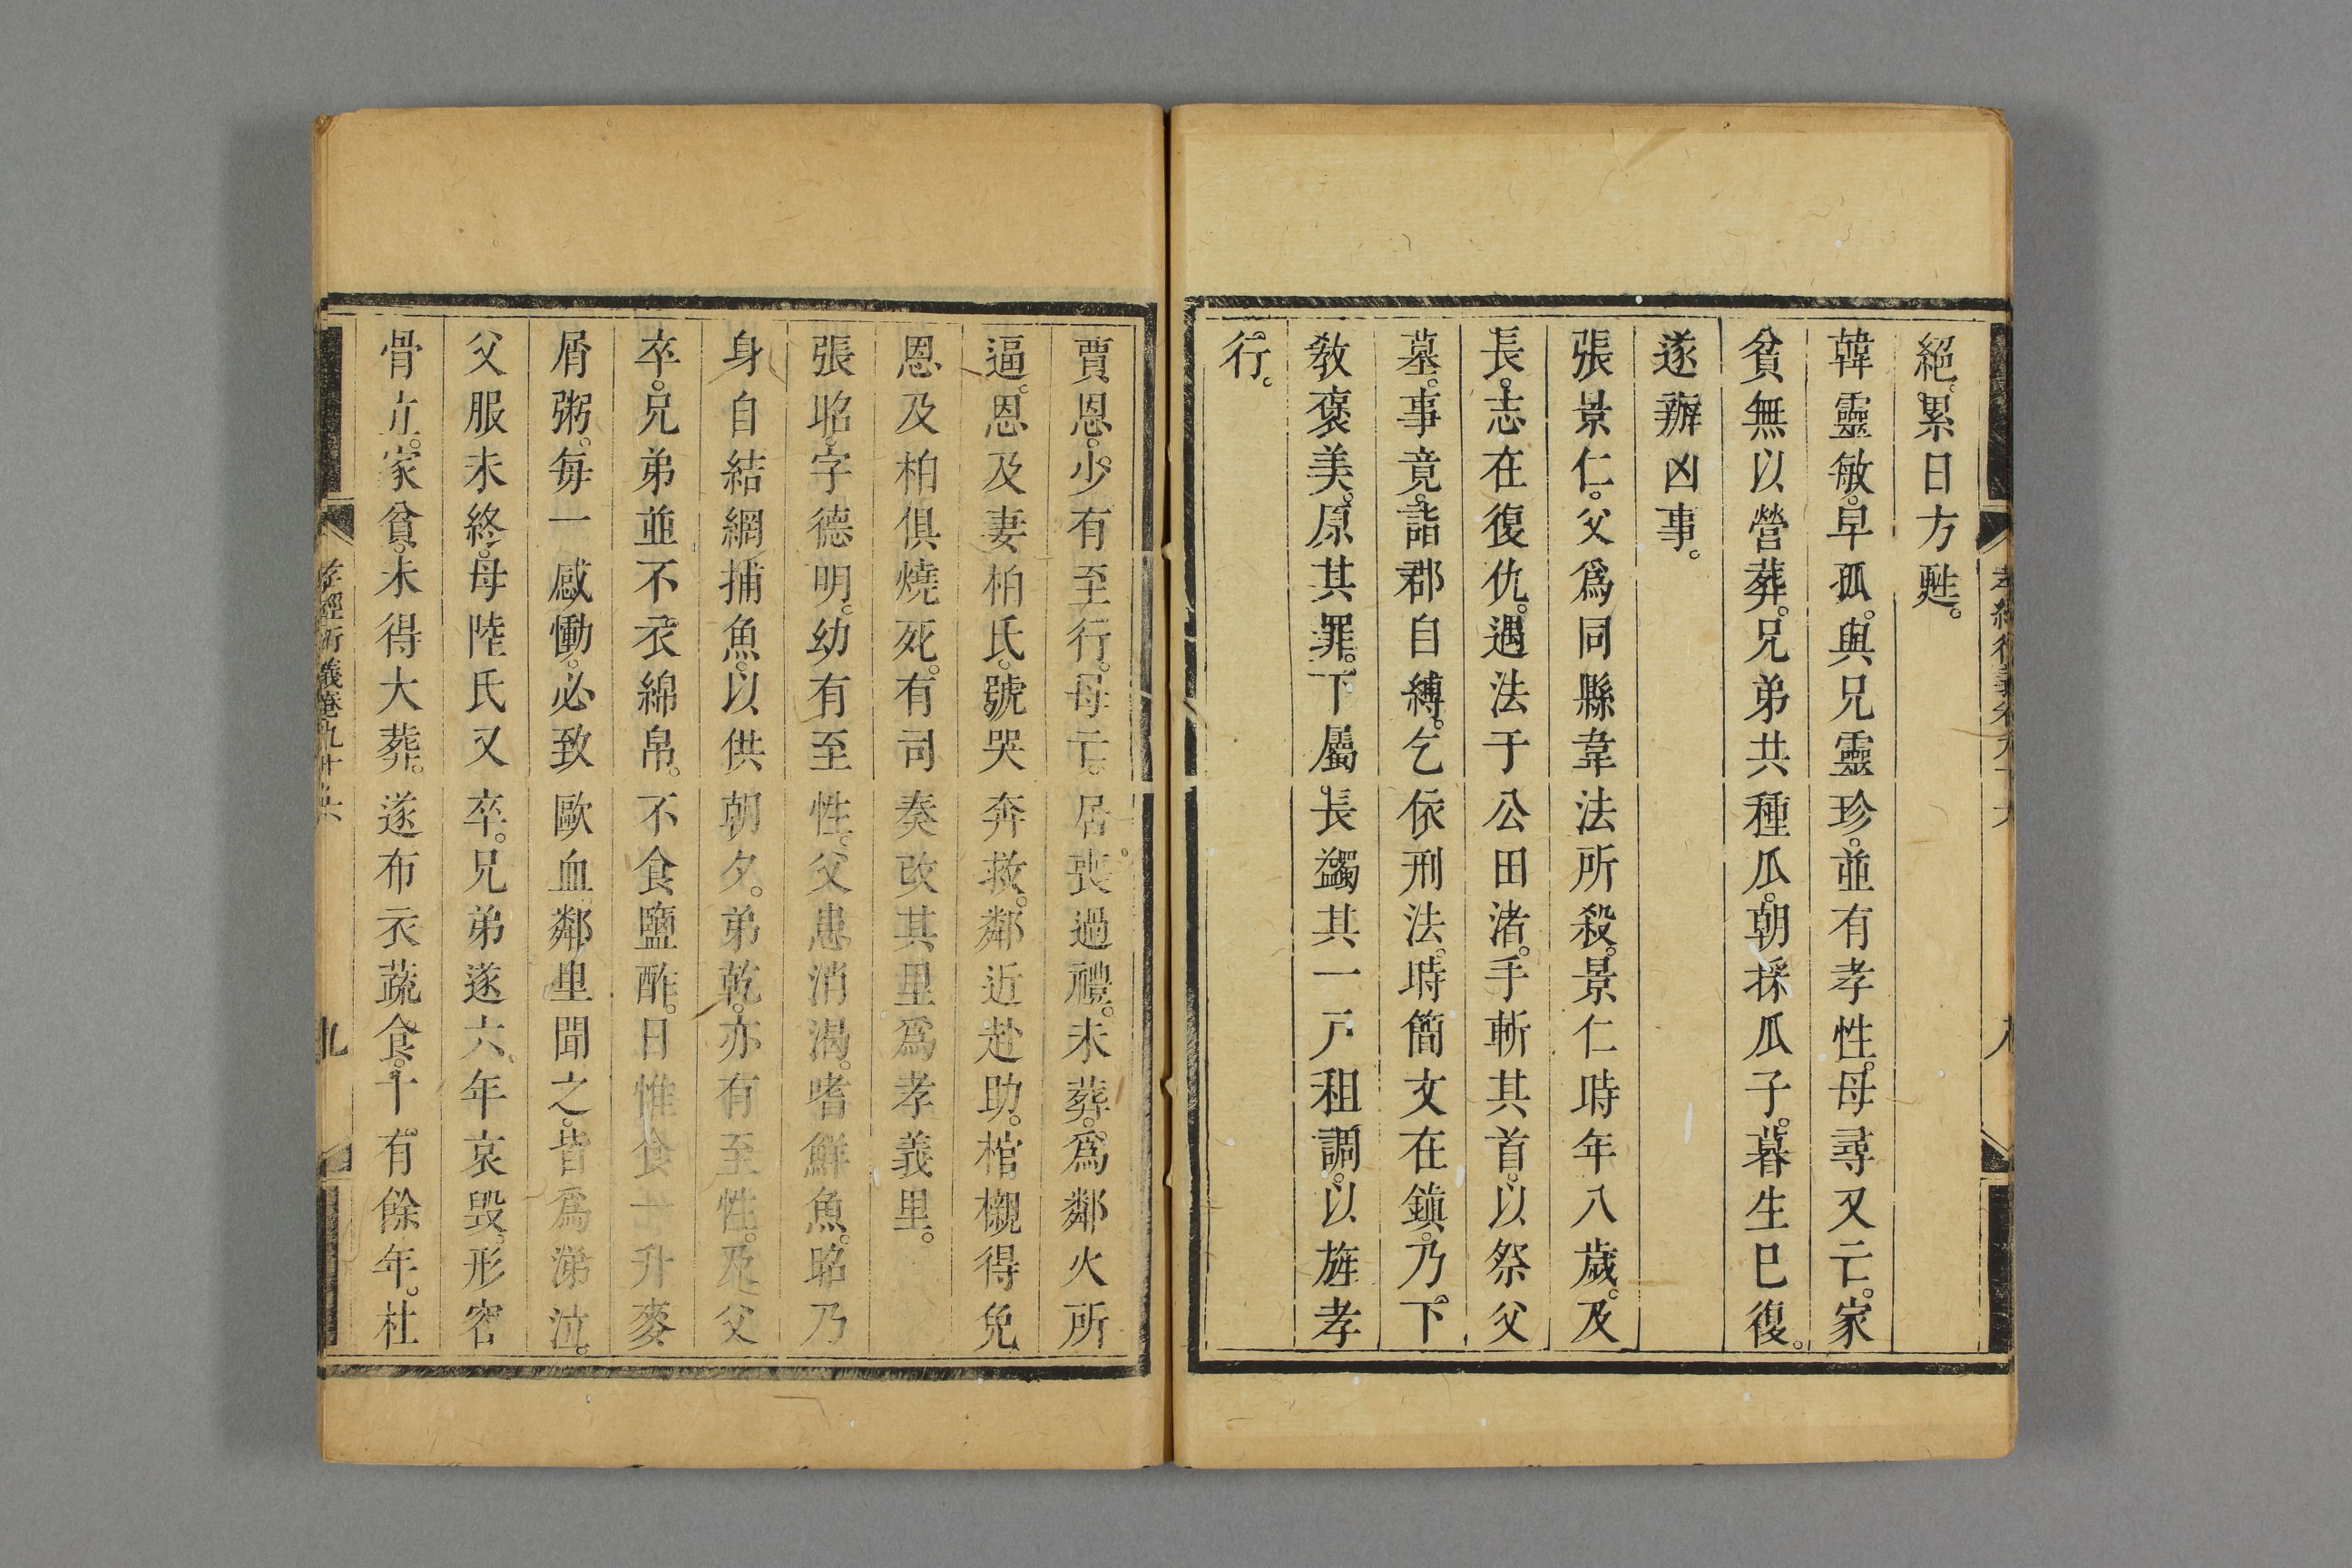 絕。累日方甦。
韓靈敏。早孤。與兄靈珍。並有孝性。母尋又亡。家
貧無以營葬。兄弟共種瓜。朝採瓜子。暮生巳復。
遂辦凶事。
張景仁。父爲同縣韋法所殺。景仁時年八歲。及
長。志在復仇。遇法于公田渚。手斬其首。以祭父
墓。事竟。詣郡自縛。乞依刑法。時簡文在鎮。乃下
敎褒美。原其罪。下屬長蠲其一戶租調。以旌孝
行。
賈恩。少有至行。母亡。居喪過禮。未葬。爲鄰火所
逼。恩及妻柏氏。號哭奔救。鄰近赴助。棺櫬得免
恩及柏俱燒死。有司奏改其里爲孝義里。
張昭。字德明。幼有至性。父患消渴。嗜鮮魚。昭乃
身自結網捕魚。以供朝夕。弟乾。亦有至性。及父
卒。兄弟並不衣綿帛。不食鹽酢。日惟食一升麥
屑粥。每一感慟。必致歐血。鄰里聞之。皆爲涕泣。
父服未終。母陸氏又卒。兄弟遂六年哀毀。形容
骨立。家貧。未得大葬。遂布衣蔬食。十有餘年。杜
孝經衍義卷九十六
九